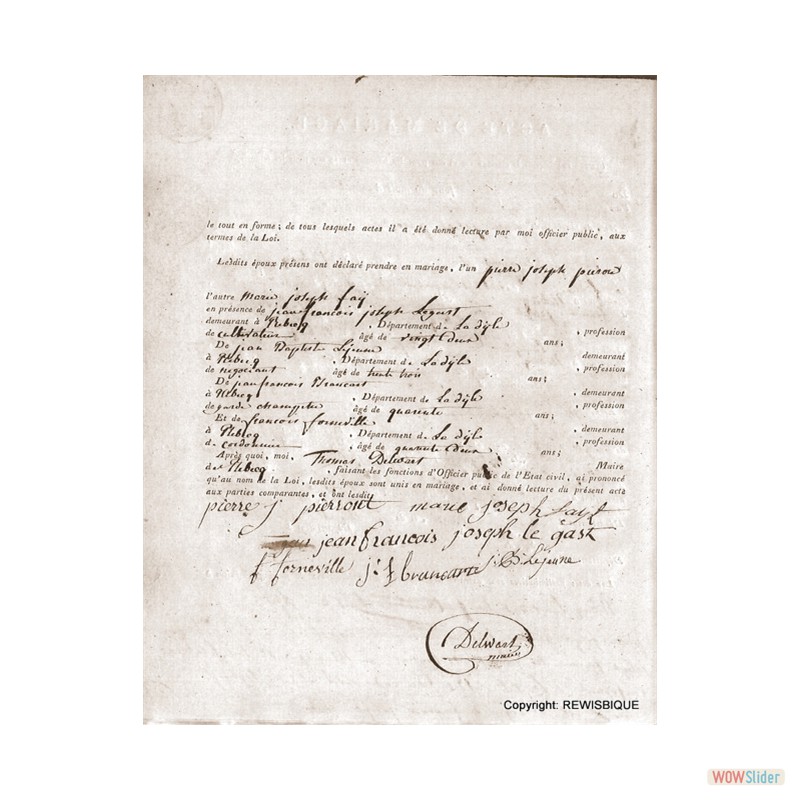 le tout en forme ; de tous lesquels actes il a été donné lecture par moi officier public, aux
termes de la Loi.
Lesdits époux présens ont déclaré prendre en mariage, l'un pierre joseph
l'autre marie joseph fay
en présence de jean francois joseph Legast
demeurant à Rebecq , Département de La dyle , profession
de cultivateur âgé de vingt deux ans ;
De jean Baptiste Lejeune demeurant
à Rebecq , Département de La dyle , profession
de negociant âgé de trente trois ans ;
De jean francois Brancart , demeurant
à Rebecq , Département de La dyle , profession
de garde champetre âgé de quarante ans ;
Et de francois forneville , demeurant
à Rebecq , Département de La dyle , profession
de cordonnier âgé de quarante deux ans ;
Après quoi, moi, Thomas Delwart Maire
de Rebecq , faisant les fonctions d'Officier public de l'Etat civil, ai prononcé
qu'au nom de la Loi, lesdits époux sont unis en mariage, et ai donné lecture du présent acte
aux parties comparantes, et ont lesdits
pierre j pierront marie joseph fayt
jean francois joseph le gast
f forneville j: f brancart j: B: Lejeune
Delwart
maire
Copyright: REWISBIQUE
WOWSlider